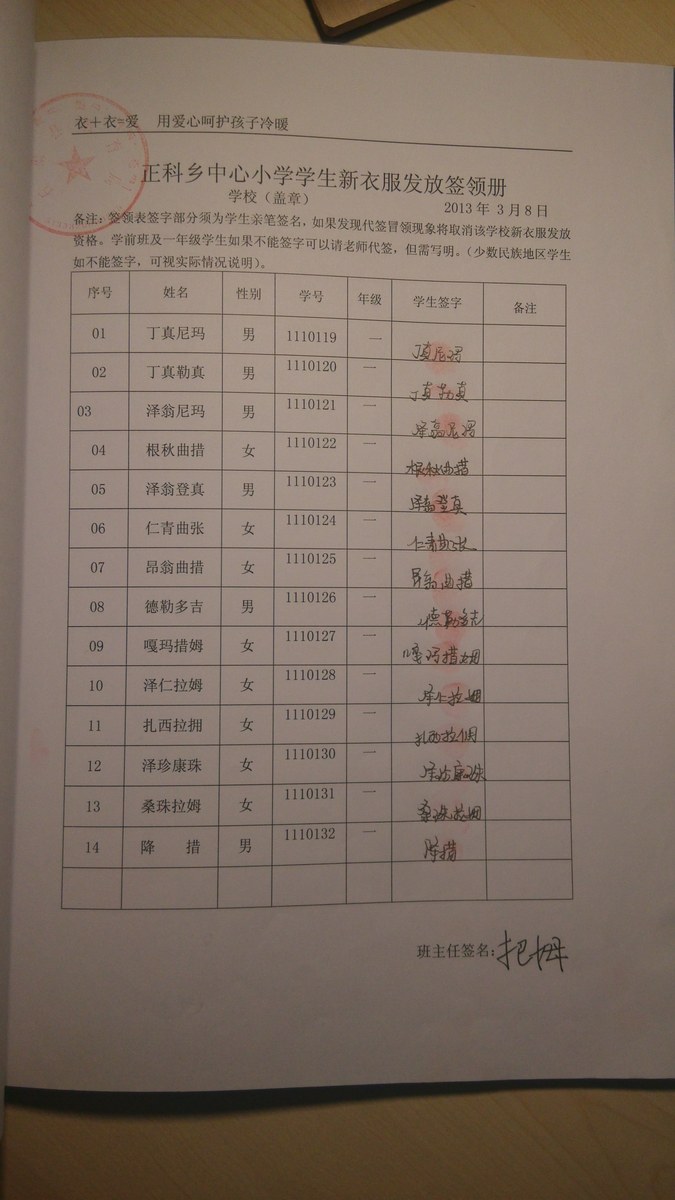 衣＋衣=爱 用爱心呵护孩子冷暖
正科乡中心小学学生新衣服发放签领册
学校（盖章）
2013 年 3 月 8 日
备注：签领表签字部分须为学生亲笔签名，如果发现代签冒领现象将取消该学校新衣服发放
资格。学前班及一年级学生如果不能签字可以请老师代签，但需写明。（少数民族地区学生
如不能签字，可视实际情况说明）。
序号 姓名 性别 学号 年级 学生签字 备注
01 丁真尼玛 男 1110119 一 丁真尼玛
02 丁真勒真 男 1110120 一 丁真勒真
03 泽翁尼玛 男 1110121 一 泽翁尼玛
04 根秋曲措 女 1110122 一 根秋曲措
05 泽翁登真 男 1110123 一 泽翁登真
06 仁青曲张 女 1110124 一 仁青曲张
07 昂翁曲措 女 1110125 一 昂翁曲措
08 德勒多吉 男 1110126 一 德勒多吉
09 嘎玛措姆 女 1110127 一 嘎玛措姆
10 泽仁拉姆 女 1110128 一 泽仁拉姆
11 扎西拉拥 女 1110129 一 扎西拉拥
12 泽珍康珠 女 1110130 一 泽珍康珠
13 桑珠拉姆 女 1110131 一 桑珠拉姆
14 降 措 男 1110132 一 降措
班主任签名：